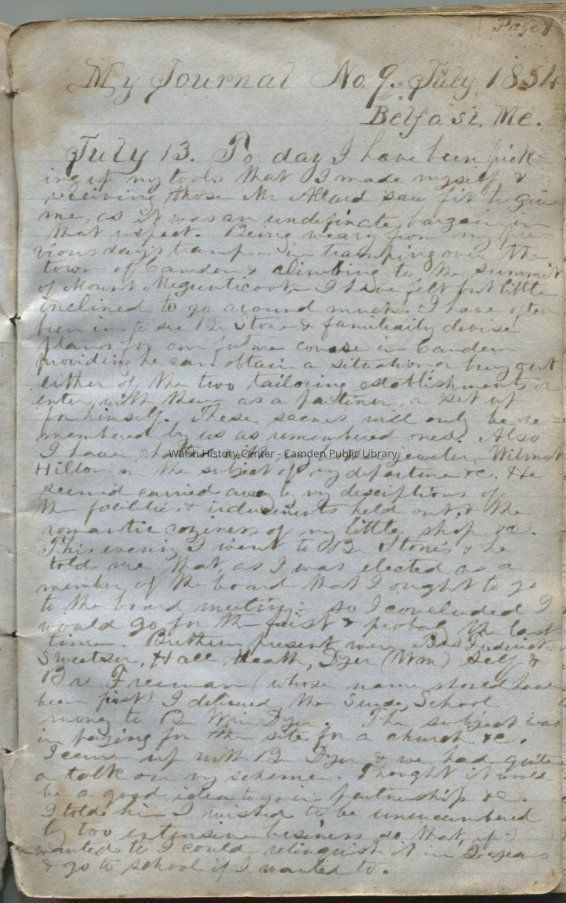 Page 1
My Journal No. 9. July 1854
Belfast, Me.
July 13. To day I have been pick-
ing up my tools that I made myself &
receiving those Mr Allard saw fit to give
me, as it was an undefinate bargain in
that respect. Being weary from my pre
vious days tramp in tramping over the
town of Camden & climbing to the summit
of Mount Megunticook I have felt but little
inclined to go around much. I have often
been in to see Br Stone & familiarly devise
plans for our future course in Camden
providing he can obtain a situation or buy out
either of the two tailoring establishments or
enter with them as a partner, or set up
for himself. These scenes will only be re-
membered by us as remembered ones. Also
I have jeweler, Wilmot
Hilton on the subject of my departure &c. He
seemed carried away by my descriptions of
the facilities & inducements held out, & the
romantic coziness of my little shop &c.
This evening I went to Br Stones & he
told me that as I was elected as a
member of the board that I ought to go
to the board meeting. so I concluded I
would go for the first & probably the last
time. Brethren present were Brs Frederick
Sweetser, Hall, Heath, Dyer (Wm) Self &
Br Freeman (whose name should have
been first) I delivered the School
money to Br Wm Dyer. The subject was
in paying for the site for a church &c.
I came up with Br Dyer & we had quite
a talk on my scheme. Thought it would
be a good idea to go in partnership &c.
I told him I wished to be unencumbered
by too extensive business so that, if I
wanted to I could relinquish it in 2 years
& go to school if I wanted to.
Walsh History Center - Camden Public Library